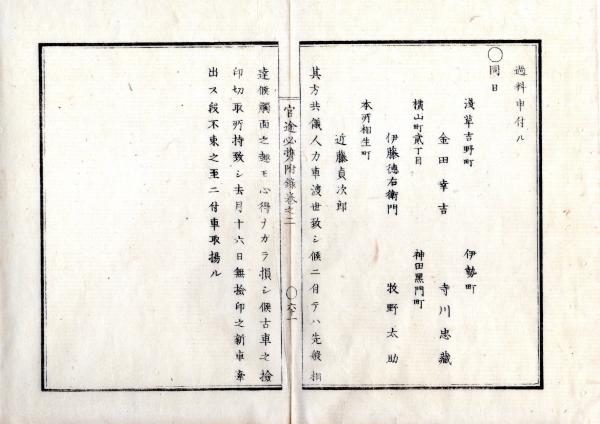 過料申付ル
〇同日
淺草吉野町
金田幸吉
伊勢町
寺川忠藏
橫山町貳丁目
伊藤德右衞門
神田黑門町
牧野太助
本所相生町
近藤貞次郎
其方共儀人力車渡世致シ候ニ付テハ先般相
官途必携附錄卷之二
〇六十一
達候觸面之趣モ心得ナカラ損シ候古車之撿
印切取所持致シ去月十六日無撿印之新車牽
出ス段不束之至ニ付車取揚ル